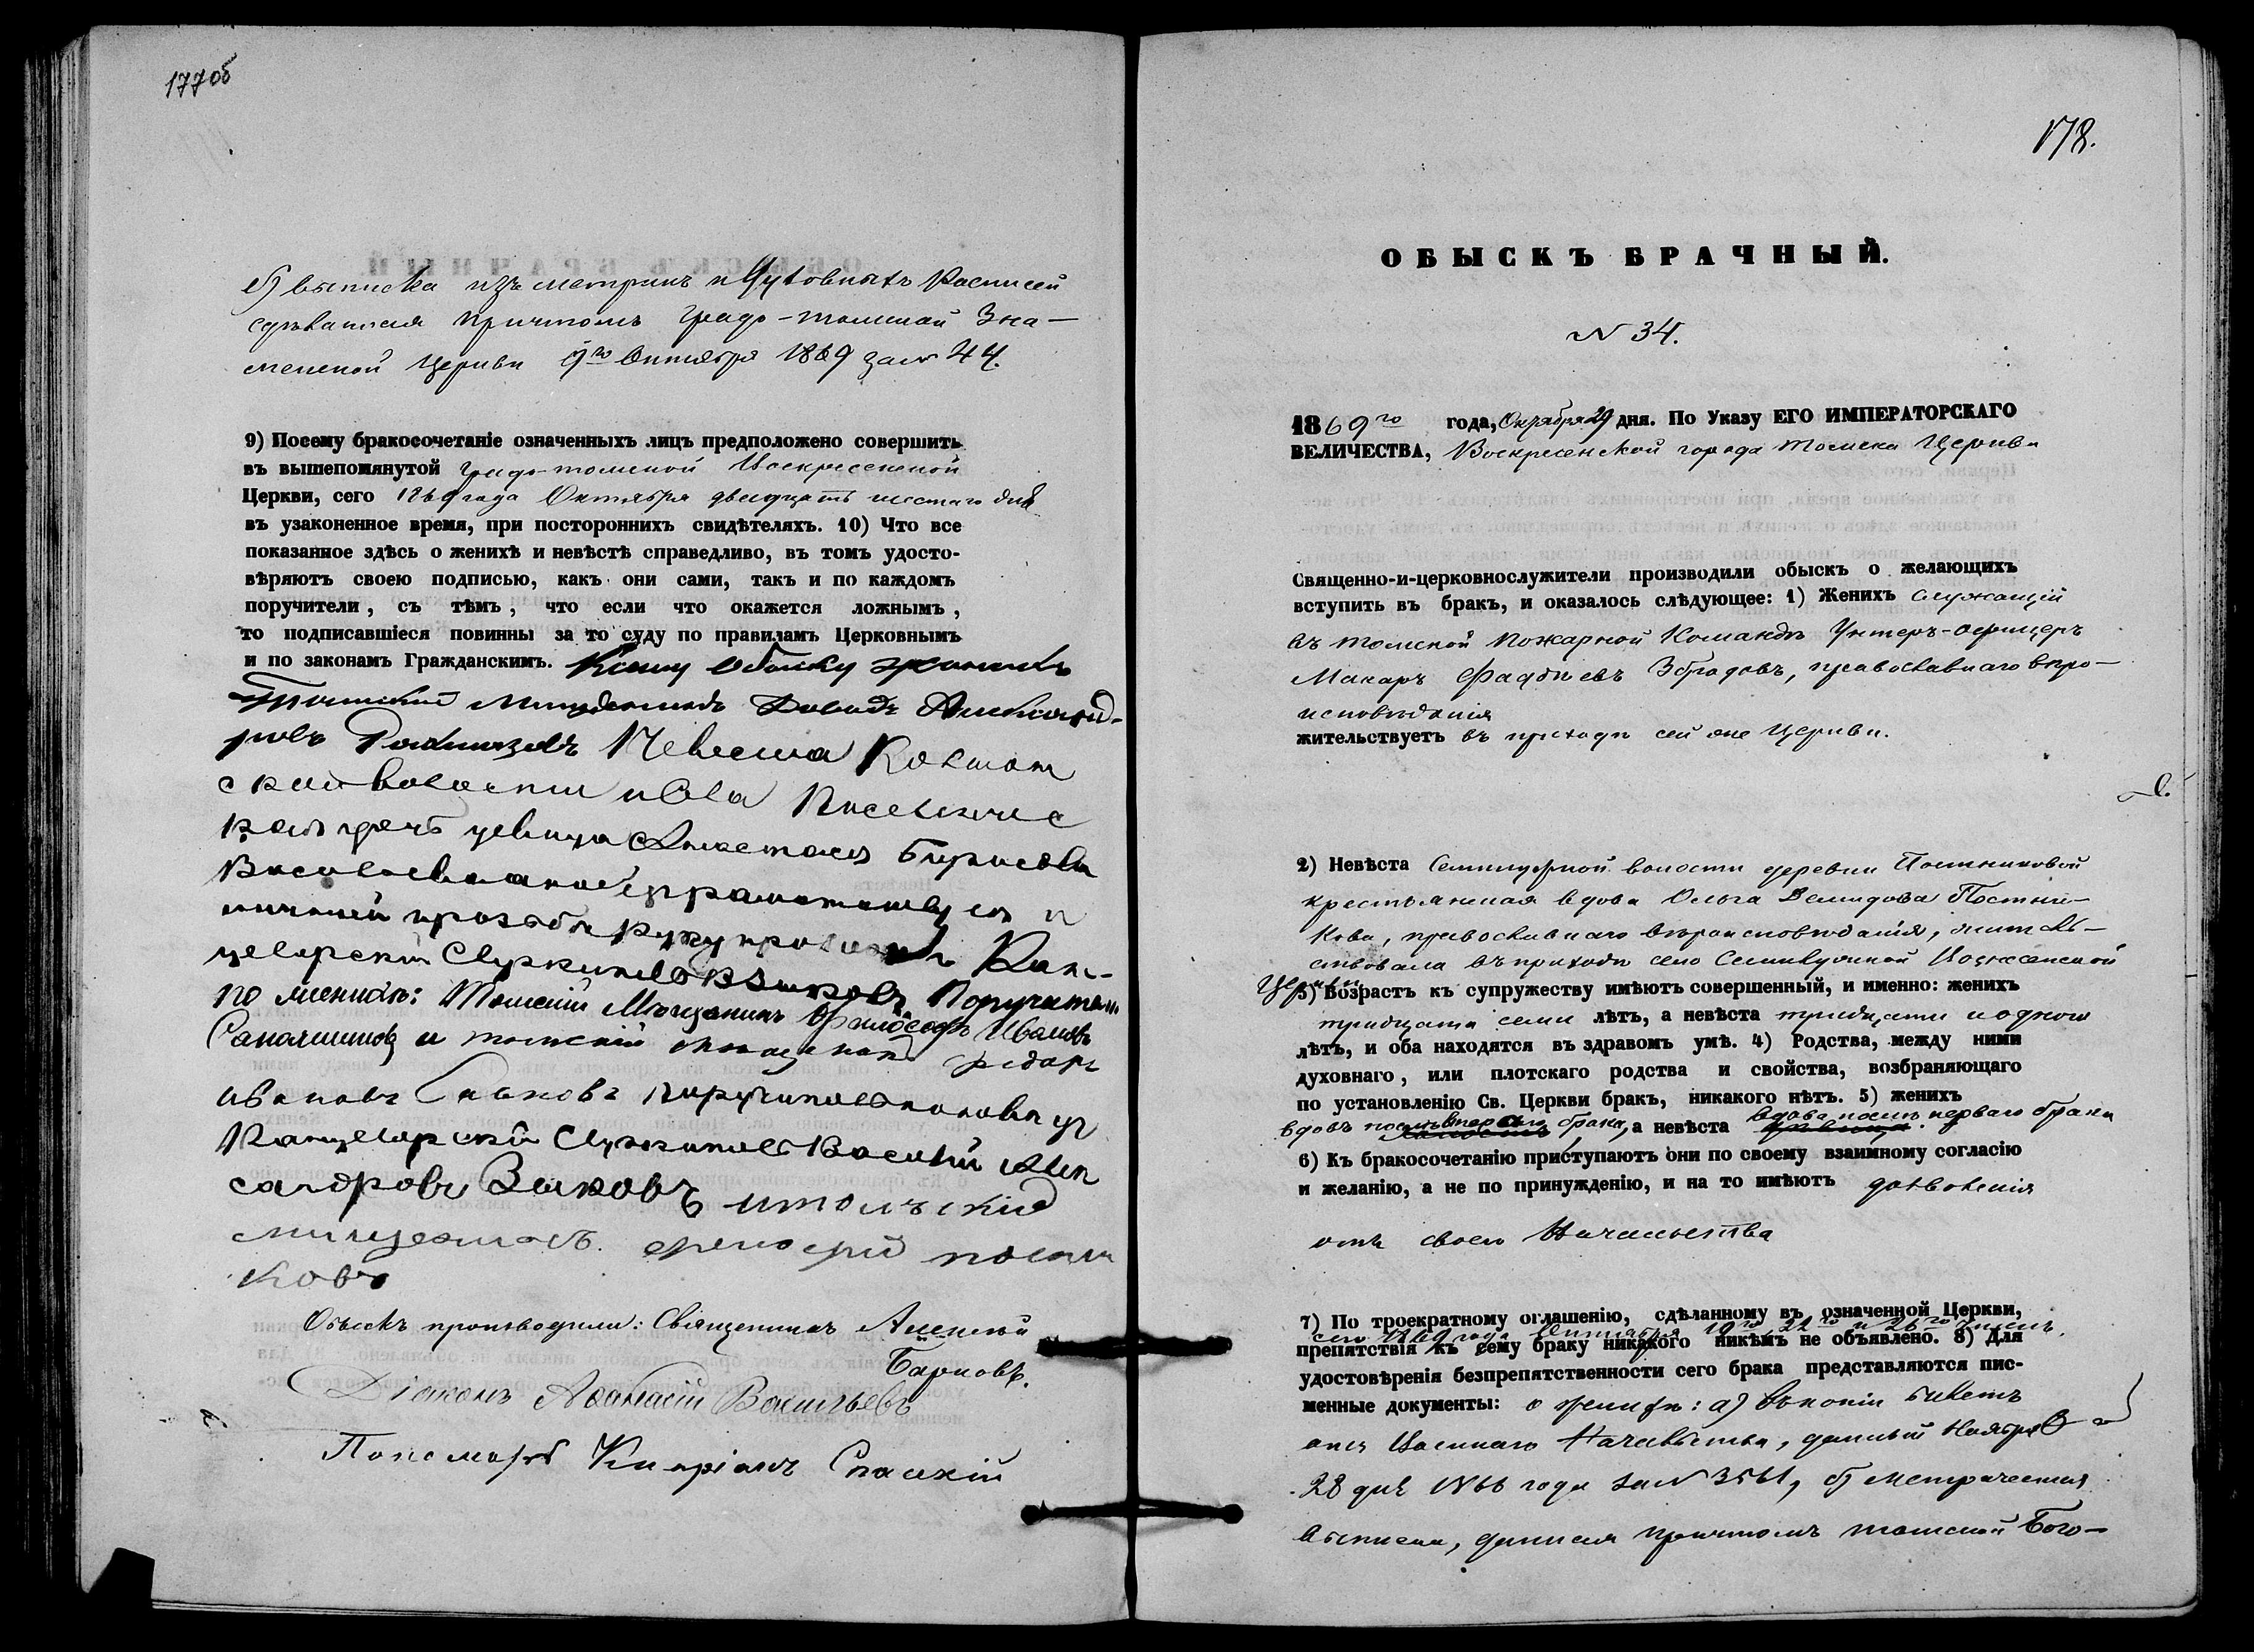 177об
б) выписка изъ метрикъ и Духовныхъ Росписей
сдѣланная причтомъ градо-томской Зна-
менской церкви 9го Октября 1869 за № 44.
9) Посему бракосочетаніе означенныхъ лицъ предположено совершить
въ вышепомянутой градо-томской Воскресенской
Церкви, сего 1869 года Октября двадцать шестаго дня
въ узаконенное время, при постороннихъ свидѣтеляхъ. 10) Что все
показанное здѣсь о женихѣ и невѣстѣ справедливо, въ томъ удосто-
вѣряютъ своею подписью, какъ они сами, такъ и по каждомъ
поручители, съ тѣмъ, что если что окажется ложнымъ,
то подписавшіеся повинны за то суду по правиламъ Церковнымъ
и по законамъ Гражданскимъ. К сему обыску женихъ
Давидъ Александ-
ровъ Невеста
ской волости
девица Анастасия Борисова
Васильева а
прозьбе руку приложилъ Кан-
целярскій Служитель Зыковъ. Поручители
по женихѣ: Томскій Мѣщанинъ Философъ Ивановъ
и томскій мѣщанинъ Федоръ
Ивановъ
Канцелярский Служитель Василий Алек
сандровъ Зыковъ и томский
мищенинъ
ковъ
Обыскъ производили: Священникъ Алексѣй
Барковъ.
Діаконъ Аѳанасій Васильевъ
Пономарь Кипріанъ Спаскій
178.
ОБЫСКЪ БРАЧНЫЙ.
№ 34.
1869го года, Октября 29 дня. По Указу ЕГО ИМПЕРАТОРСКАГО
ВЕЛИЧЕСТВА, Воскресенской города Томска Церкви
Священно-и-церковнослужители производили обыскъ о желающихъ
вступить въ бракъ, и оказалось слѣдующее: 1) Женихъ служащій
въ томской пожарной Командѣ Унтеръ-офицеръ
Макаръ Фадѣевъ Збродовъ, православнаго вѣро-
исповѣданія
жительствуетъ въ приходѣ сей же церкви.
2) Невѣста Семилужной волости деревни Постниковой
крестьянская вдова Ольга Демидова Постни-
кова, православнаго вѣроисповѣданія, житель-
ствовала въ приходѣ села Семилужной Вознесенской
Церкви
3) Возрастъ къ супружеству имѣютъ совершенный, и именно: женихъ
тридцати семи лѣтъ, а невѣста тридцати и одного
лѣтъ, и оба находятся въ здравомъ умѣ. 4) Родства, между ними
духовнаго, или плотскаго родства и свойства, возбраняющаго
по установленію Св. Церкви бракъ, никакого нѣтъ. 5) женихъ
вдовъ послѣ перваго брака, а невѣста вдова послѣ перваго брака
6) Къ бракосочетанію приступаютъ они по своему взаимному согласію
и желанію, а не по принужденію, и на то имѣютъ дозволенія
отъ своего Начальства
7) По троекратному оглашенію, сдѣланному въ означенной Церкви,
сего 1869 года Октября 19го 22го и 26го числъ,
препятствія къ сему браку никакого никѣмъ не объявлено. 8) Для
удостовѣренія безпрепятственности сего брака представляются пис-
менные документы: о женихѣ: а) билетъ
отъ Военнаго Начальства, данный Ноября
28 дня 1866 года за № 3561, б) Метрическая
выписка, данная причтомъ томской Бого-